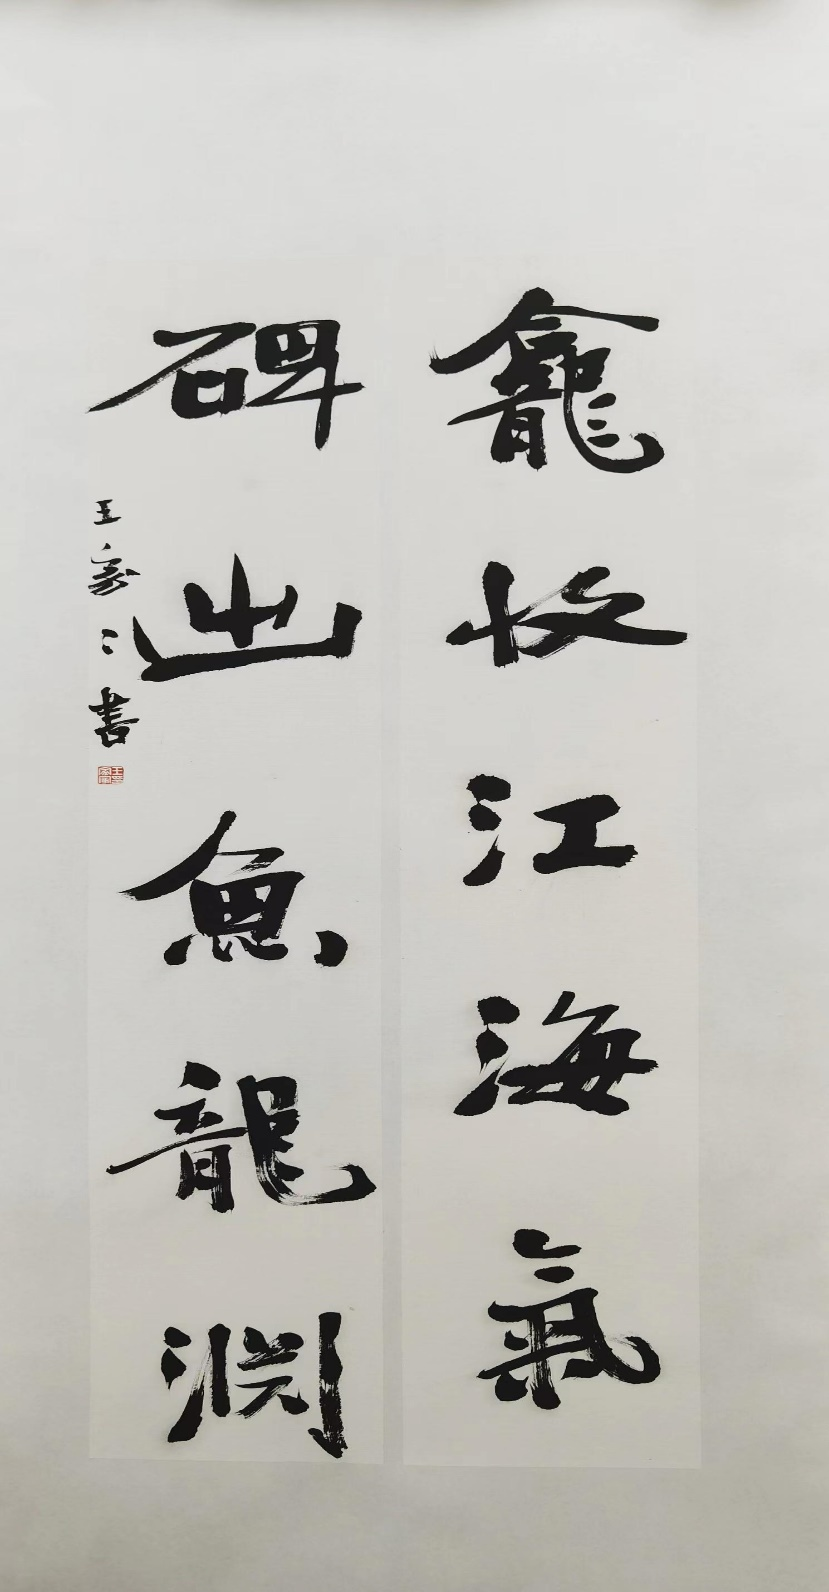 龕收江海氣
碑出魚龍淵
王家〻書